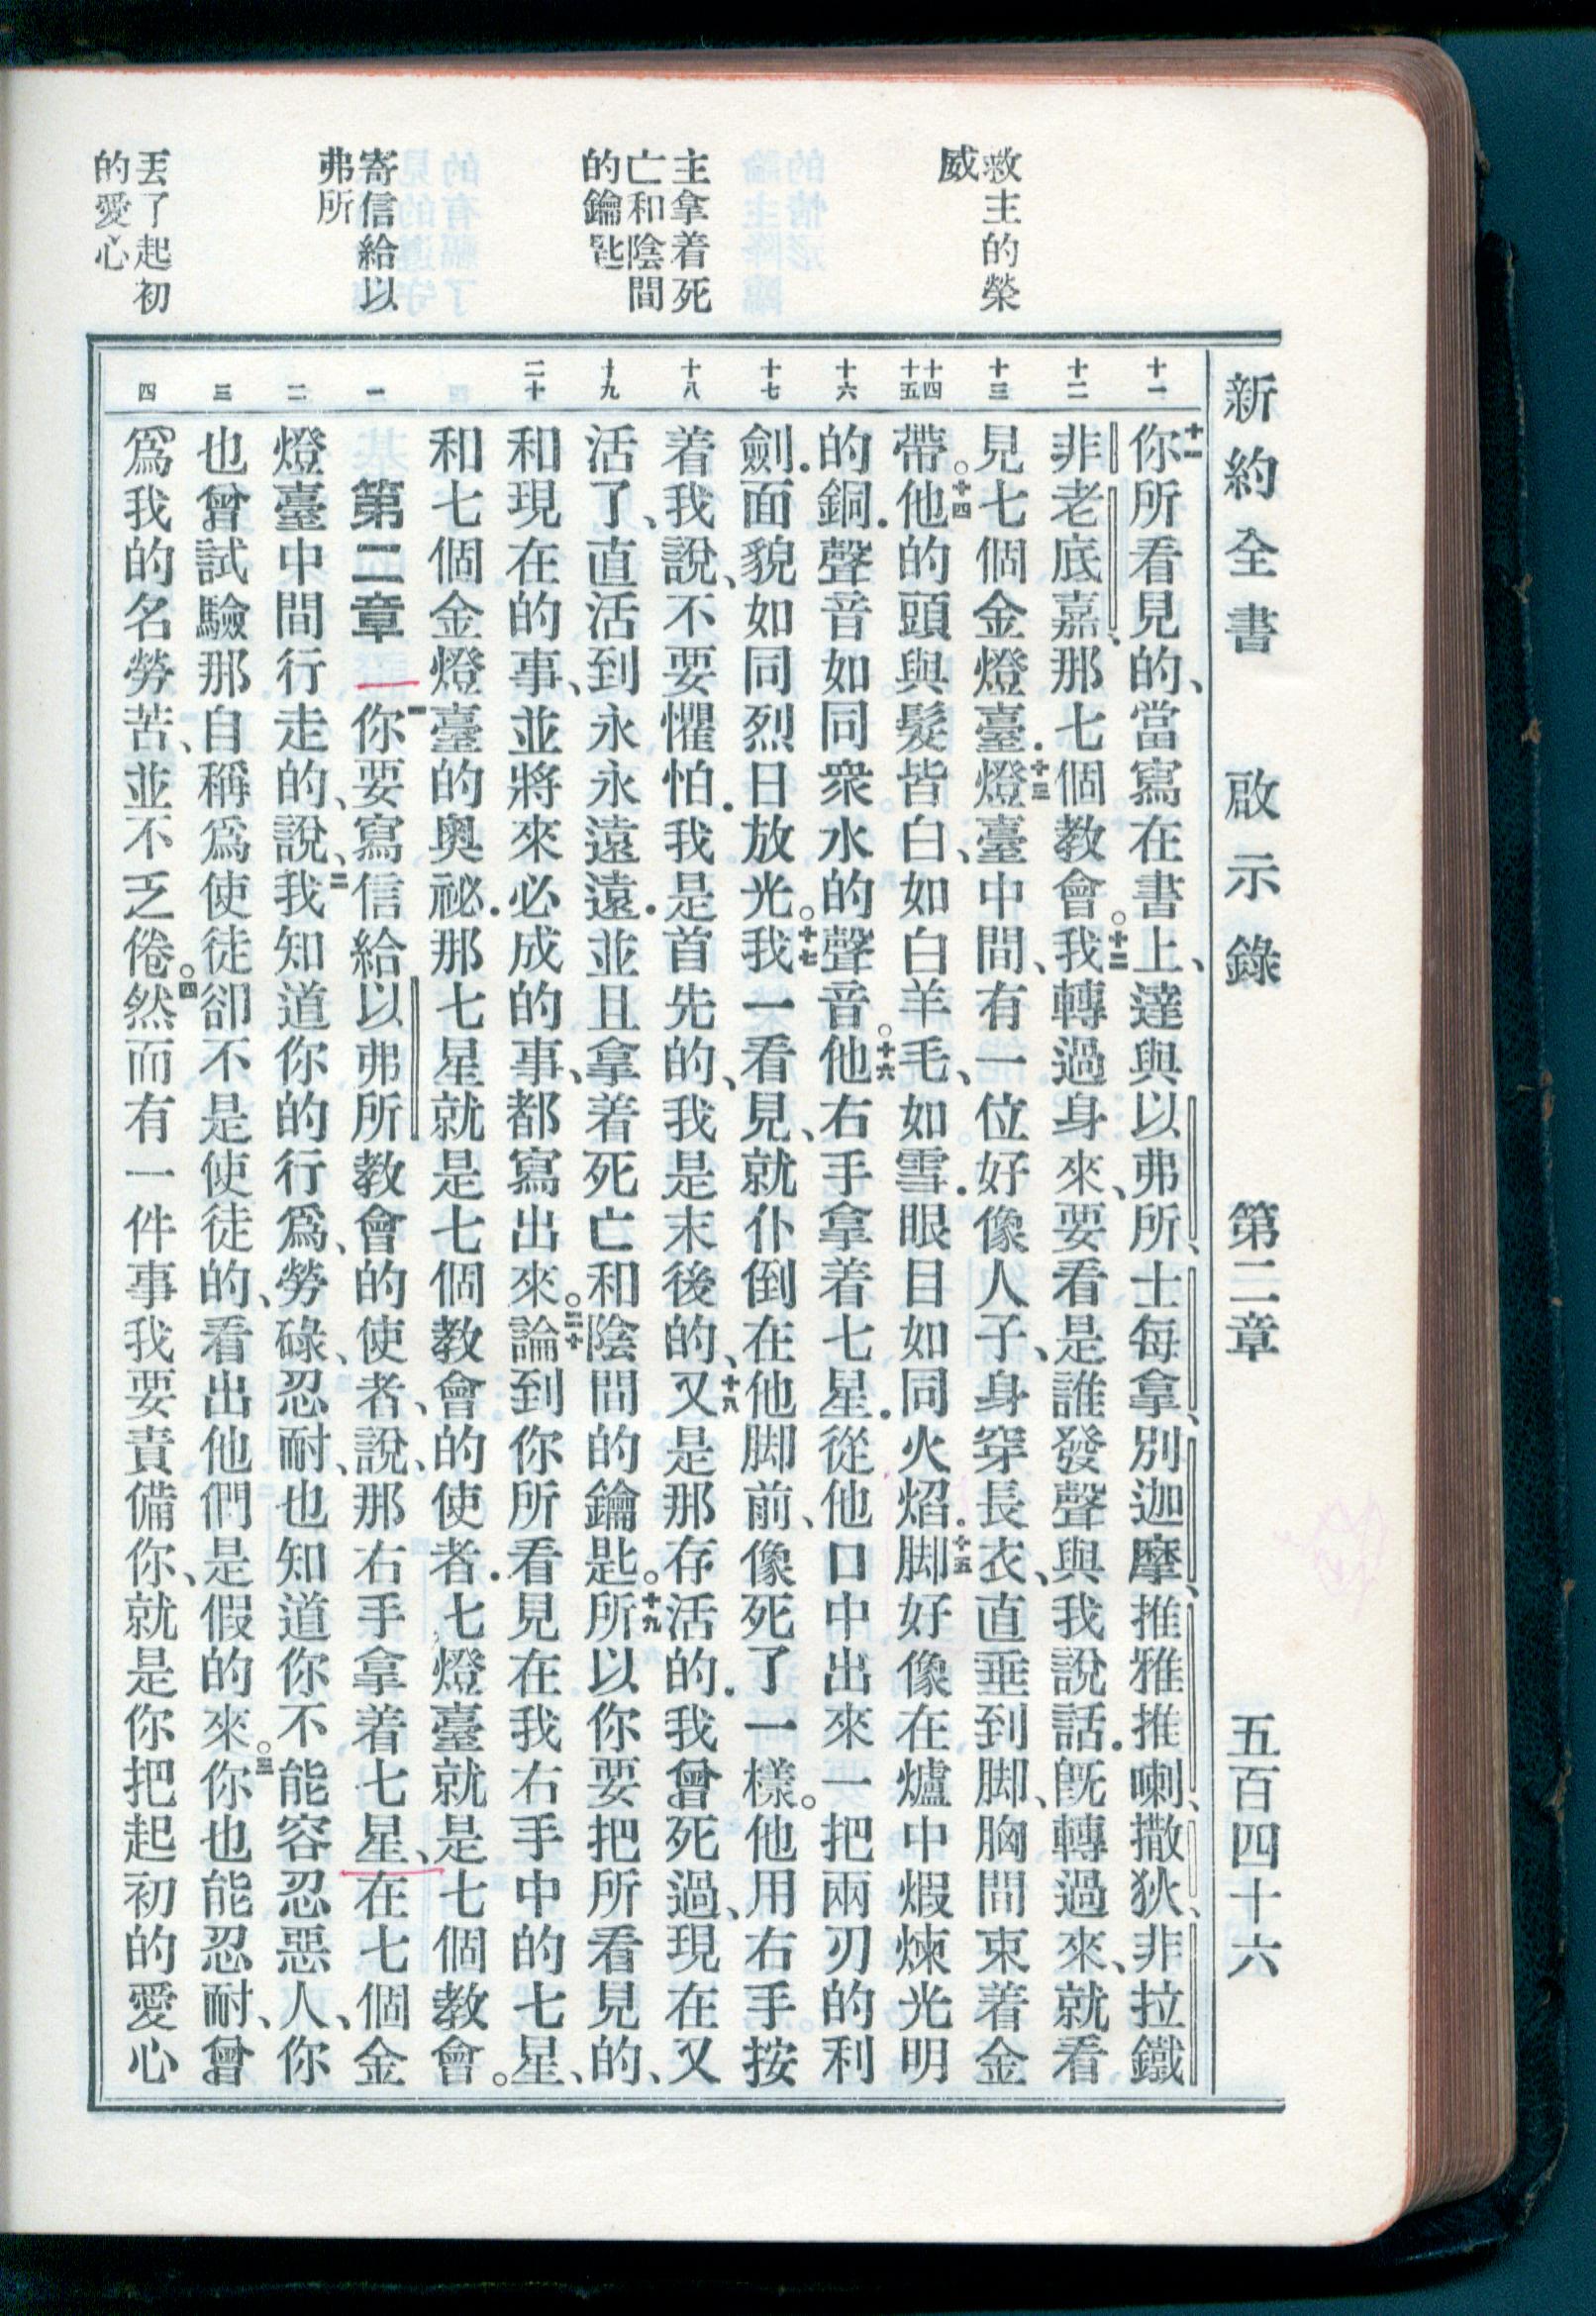 新約全書 啟示錄 第二章 五百四十六
救主的榮
威
主拿着死
亡和陰間
的鑰匙
寄信給以
弗所
丟了起初
的愛心
十一
十二
十三
十四
十五
十六
十七
十八
十九
二十
一
二
三
四
十一你所看見的、當寫在書上、達與以弗所、士每拿、別迦摩、推雅推喇、撒狄、非拉鐵
非老底嘉、那七個教會。十二我轉過身來、要看是誰發聲與我說話．旣轉過來、就看
見七個金燈臺．十三燈臺中間、有一位好像人子、身穿長衣、直垂到脚、胸間束着金
帶。十四他的頭與髮皆白、如白羊毛、如雪．眼目如同火焰．十五脚好像在爐中煅煉光明
的銅．聲音如同衆水的聲音。十六他右手拿着七星．從他口中出來一把兩刃的利
劍．面貌如同烈日放光。十七我一看見、就仆倒在他脚前、像死了一樣。他用右手按
着我說、不要懼怕．我是首先的、我是末後的、十八又是那存活的．我曾死過、現在又
活了、直活到永永遠遠．並且拿着死亡和陰間的鑰匙。十九所以你要把所看見的、
和現在的事、並將來必成的事、都寫出來。二十論到你所看見在我右手中的七星、
和七個金燈臺的奧祕．那七星就是七個教會的使者．七燈臺就是七個教會。
第二章 一你要寫信給以弗所教會的使者、說、那右手拿着七星、在七個金
燈臺中間行走的、說、二我知道你的行爲、勞碌、忍耐、也知道你不能容忍惡人、你
也曾試驗那自稱爲使徒卻不是使徒的、看出他們是假的來。三你也能忍耐、曾
爲我的名勞苦、並不乏倦。四然而有一件事我要責備你、就是你把起初的愛心